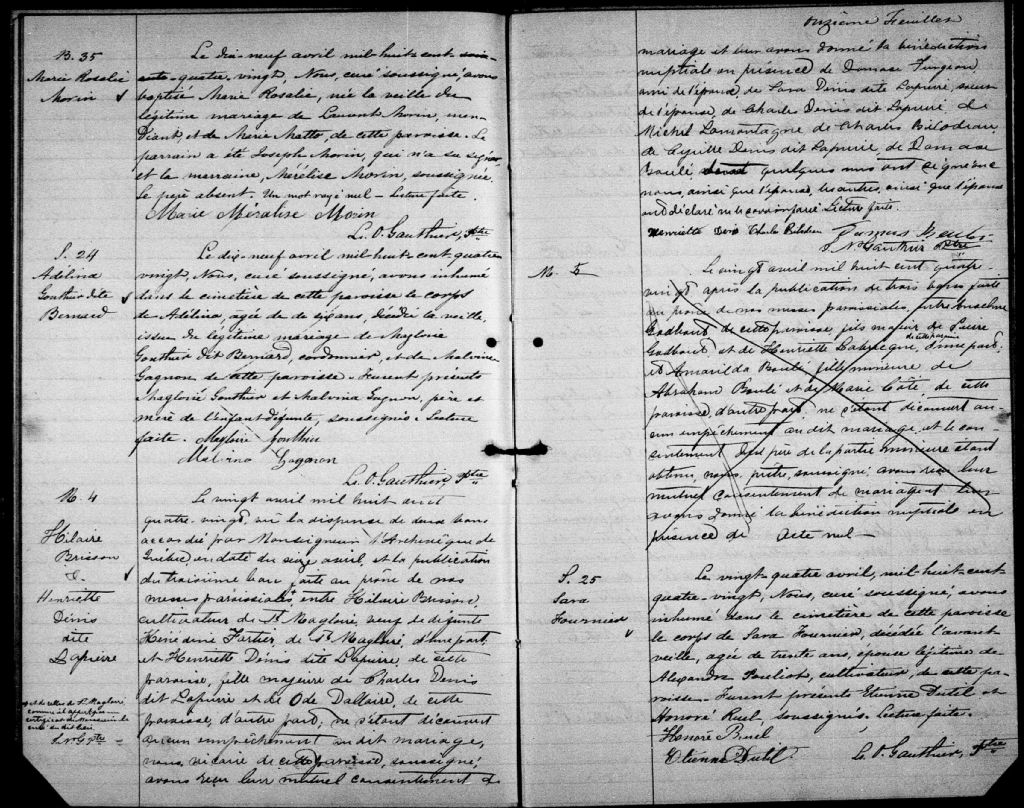 B. 35
Marie Rosalie
Morin
Le dix-neuf avril mil huit cent soix-
ante-quatre-vingt, Nous, curé soussigné, avons
baptisé Marie Rosalie, née la veille du
légitime mariage de Laurent Morin, men-
diant, et de Marie Matte, de cette paroisse. Le
parrain a été Joseph Morin, qui n'a su signer
et la marraine, Méralise Morin, soussignée.
Le père absent. Un mot rayé nul - Lecture faite.
Marie Méralise Morin
L. O. Gauthier, Ptre
S. 24
Adélina
Gonthier dite
Bernard
Le dix-neuf avril mil-huit-cent-quatre
vingt, Nous, curé soussigné, avons inhumé
dans le cimetière de cette paroisse le corps
de Adélina, agée de six ans, décédée la veille,
issue du légitime mariage de Magloire
Gonthier dit Bernard, cordonnier, et de Malvina
Gagnon de cette paroisse. Furent présents
Magloire Gonthier et Malvina Gagnon, père et
mère de l'enfant défunte, soussignés. Lecture
faite. Magloire Gonthier
Malvina Gagnon
L. O. Gauthier, Ptre
M. 4
Hilaire
Brisson
&
Henriette
Denis
dite
Lapierre
et de celles de St Magloire,
comme il appert par un
certificat de Monsieur le
curé du dit lieu
Le vingt avril mil huit cent
quatre-vingt, vu la dispense de deux bans
accordée par Monseigneur l'Archevêque de
Québec, en date du seize avril, et la publication
du troisième ban faite au prône de nos
messes paroissiales, entre Hilaire Brisson,
cultivateur de St Magloire, veuf de défunte
Bénédine Fortier de St Magloire, d'une part,
et Henriette Denis dite Lapierre, de cette
paroisse, fille majeure de Charles Denis
dit Lapierre et de Ode Dallaire, de cette
paroisse, d'autre part, ne s'étant découvert
aucun empêchement au dit mariage,
nous, vicaire de cette paroisse, soussigné,
avons reçu leur mutuel consentement de
onzième Feuillet
mariage et leur avons donné la bénédiction
nuptiale en présence de Damase Turgeon,
ami de l'époux, de Sara Denis dite Lapierre, soeur
de l'épouse, de Charles Denis dit Lapierre de
Michel Lamontagne de Charles Bilodeau
de Cyrille Denis dit Lapierre de Damase
Boulé, dont quelques uns ont signé avec
nous, ainsi que l'épouse, les autres, ainsi que l'époux
ont déclaré ne le savoir faire. Lecture faite.
Henriette Denis Charles Bilodeau
J. N. Gauthier Ptre
M. 5
Le vingt avril mil huit cent quatre
vingt après la publication de trois bans faite
au prône de nos messes paroissiales, entre Anselme
Godbout de cette paroisse, fils majeur de Pierre
Godbout et de Henriette Labrecque, de cette paroisse d'une part,
et Amarilda Boulé, fille mineure de
Abraham Boulé et de Marie Côté de cette
paroisse, d'autre part, ne s'étant découvert au-
cun empêchement au dit mariage, et le con-
sentement du père de la partie mineure étant
obtenu, nous, prêtre, soussigné, avons reçu leur
mutuel consentement de mariage et leur
avons donné la bénédiction nuptiale en
présence de acte nul -
S. 25
Sara
Fournier
Le vingt-quatre avril, mil-huit-cent
quatre-vingt, Nous, curé soussigné, avons
inhumé dans le cimetière de cette paroisse
le corps de Sara Fournier, décédée l'avant
veille, agée de trente ans, épouse légitime de
Alexandre Pouliot, cultivateur, de cette pa-
roisse. Furent présents Etienne Dutil et
Honoré Ruel, soussignés. Lecture faite.
Honoré Ruel
Etienne Dutil
L. O. Gauthier, Ptre